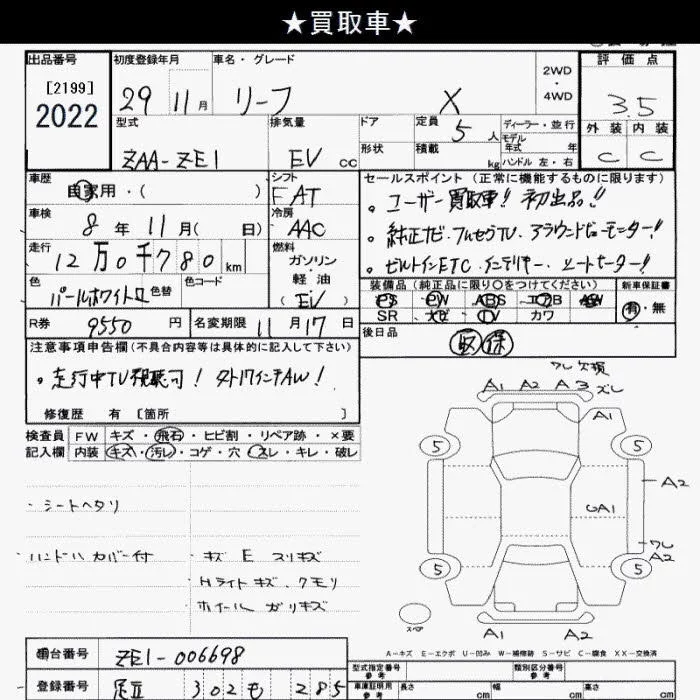 ★買取車★
出品番号
[2199]
2022
初度登録年月
29 11月
車名・グレード
リーフ X
2WD
・
4WD
評価点
3.5
外装 内装
C C
型式
ZAA-ZE1
排気量
EV cc
ドア
形状
定員 5人
積載 kg
ディーラー・並行
モデル
年式 年
ハンドル 左・右
車歴
自家用・( )
シフト
FAT
車検
8年11月( 日)
冷房
AAC
走行
12万0千780km
燃料
ガソリン
・
軽油
(EV)
色
パールホワイトⅡ 色替
色コード
R券 9550円
名変期限 11月17日
セールスポイント (正常に機能するものに限ります)
。ユーザー買取車!! 初出品!!
。純正ナビ・フルセグTV、アラウンドビューモニター!!
。ビルトインETC、インテリキー、シートヒーター!!
装備品(純正品に限り○をつけてください)
PS PW ABS エアB AW
SR ナビ TV カワ
新車保証書
有・無
後日品
取 保
注意事項申告欄(不具合内容等は具体的に記入して下さい)
。走行中TV視聴可! 夕卜17インチAW!
修復歴 有 [箇所 ]
検査員
記入欄
FW キズ・飛石・ヒビ割・リペア跡・×要
内装 キズ・汚レ・コゲ・穴・スレ・キレ・破レ
・シートヘタリ
ハンドルカバー付
・キズ E スリキズ
Hライトキズ、クモリ
ホイールガリキズ
ワレ欠損
A1 A2 A3 ズレ
A1
5 5
A2
UA1
ワレ
A2
5 5
スペア
A1 A2
A-キズ E-エクボ U-凹み W-補修跡 S-サビ C-腐食 XX-交換済
車台番号 ZE1-006698
登録番号 足立 302 も 285
型式指定番号
参考
類別区分番号
参考
車庫証明用
参考
長さ cm 幅 cm 高さ cm